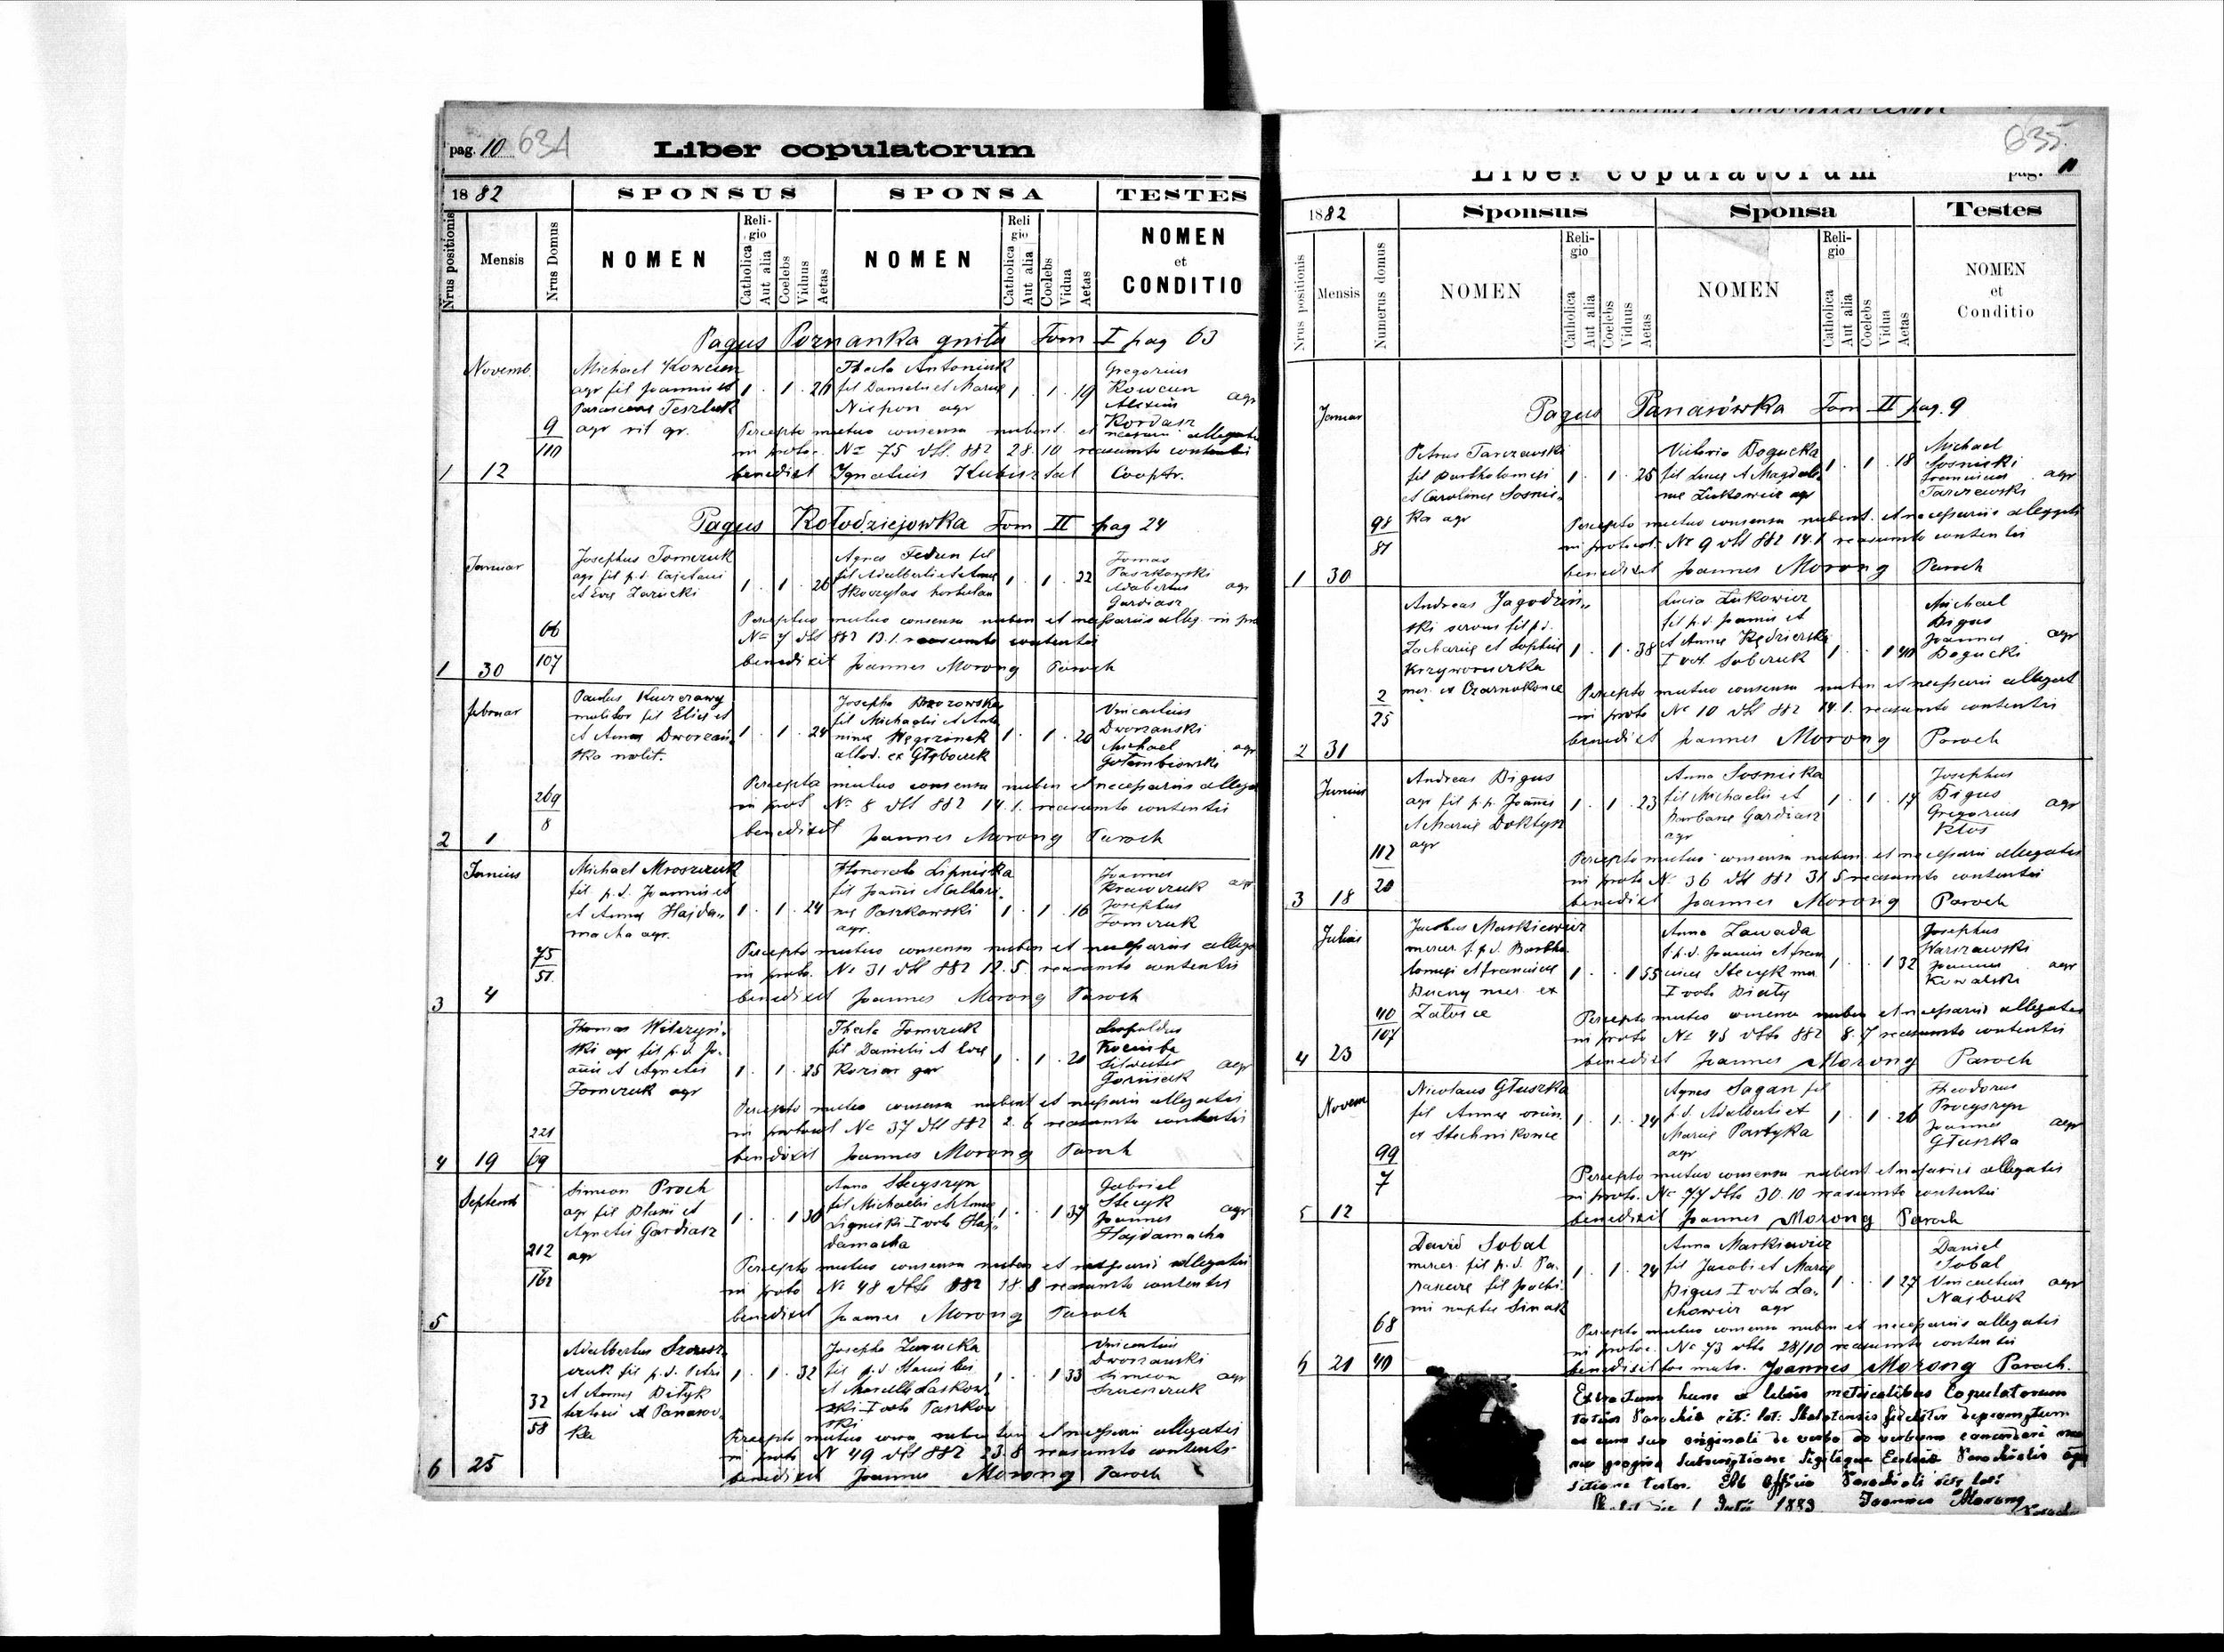 pag. 10 634
Liber copulatorum
1882 SPONSUS SPONSA TESTES
Nrus positionis Mensis Nrus Domus NOMEN Religio Catholica Aut alia Coelebs Viduus Aetas NOMEN Religio Catholica Aut alia Coelebs Vidua Aetas NOMEN et CONDITIO
Pagus Poznanka gniła Tom I pag 63
Novemb. Michael Kowcun Thecla Antoniuk Gregorius
agr fil Joannis et 1 . 1 . 26 fil Danielis et Mariae 1 . 1 . 19 Kowcun agr
Parasceve Teszluk Niepon agr Alexius
9 agr rit gr. Kordasz
Percepto mutuo consensu nubent. et necessariis allegatis
110 in proto. No 75 dtt. 882 28.10 reasumto contentis
1 12 benedixit Ignatius Kubisztal Cooptr.
Pagus Kołodziejowka Tom II pag 24
Januar Josephus Tomczuk Agnes Fedun fil Tomas
agr fil p.d. Cajetani 1 . 1 . 26 fil Adalberti et Annae 1 . 1 . 22 Paszkowski
et Evae Zarucki Skoczylas hortulan Adalbertus agr
Gardiasz
66 Perceptuo mutuo consensu nuben et necessariis alleg. in pro
No 7 dtt 882 13.1. reasumto contentis
1 30 107 benedixit Joannes Morong Paroch
Februar Paulus Kuczerawy Josepha Brozowska Vincentius
molitor fil Eliae et 1 . 1 . 24 fil Michaelis et Anto 1 . 1 . 20 Dworzanski
et Annae Dworzań ninae Węgrzinek Michael agr
ska molit. allod. ex Głęboczek Gołembiowski
269 Percepta mutuo consensu nuben et necessariis allega
in prot No 8 dtt 882 14.1. reasumto contentis
2 1 8 benedixit Joannes Morong Paroch
Junius Michael Mroszczuk Honorata Lipnicka Joannes
fil p.d. Joannis et fil Joannis et Cathari Krawczuk agr
et Annae Hajda- 1 . 1 . 24 nae Paszkowski 1 . 1 . 16 Josephus
macha agr. agr. Tomczuk
75 Percepto mutuo consensu nuben et necessariis allega
51 in proto. No 31 dtt 882 12.5. reasumto contentis
3 4 benedixit Joannes Morong Paroch
Thomas Wilczyń- Thecla Tomczuk Leopoldus
ski agr fil p.d. Jo- fil Danielis et Evae Kociuba
annis et Agnetis 1 . 1 . 25 Koziar agr 1 . 1 . 20 Silvester agr
Tomczuk agr
Percepto mutuo consensu nubent et necessariis allegatis
221 in protocol No 37 dtt 882 2.6 reasumto contentis
4 19 69 benedixit Joannes Morong Paroch
Septemb Simeon Proch Anna Stecyszyn Gabriel
agr fil Blasii et 1 . . 1 30 fil Michaelis et Annae 1 . . 1 37 Stecyk
Agnetis Gardiasz Lignicki I voto Haj- Joannes agr
212 agr damacha Hajdamacha
162 Percepto mutuo consensu nuben et necessariis allegatis
in proto No 48 dtto 882 18.8 reasumto contentis
5 benedixit Joannes Morong Paroch
Adalbertus Szewcz Josepha Zarucka Vincentius
czuk fil p.d. Petri 1 . 1 . 32 fil p.d. Stanislai 1 . . 1 33 Dworzanski
et Annae Bełyk et Marcellae Laskow- Simeon agr
32 ex Panasow- ski I voto Paszkow
58 ka ski
Percepto mutuo nuben et necessariis allegatis
in proto N 49 dtt 882 23.8 reasumto contentis
6 25 benedixit Joannes Morong Paroch
635
Liber copulatorum pag. 11
1882 Sponsus Sponsa Testes
Nrus positionis Mensis Numerus domus NOMEN Religio Catholica Aut alia Coelebs Viduus Aetas NOMEN Religio Catholica Aut alia Coelebs Vidua Aetas NOMEN et Conditio
Januar Pagus Panasówka Tom II pag. 9
Petrus Tarczewski Victoria Bogucka Michael
fil Bartholomei 1 . 1 . 25 fil Lucae et Magdale 1 . 1 . 18 Sosnicki
et Carolinae Sosnic- nae Lukowicz agr Franciscus agr
ka agr Tarczewski
98 Percepto mutuo consensu nubent. et necessariis allegatis
81 in protocol. No 9 dtt 882 14.1 reasumto contentis
1 30 benedixit Joannes Morong Paroch
Andreas Jagodziń- Lucia Lukowicz Michael
ski servus fil p.d. fil p.d. Joannis et Bigus
Zachariae et Sophiae 1 . 1 . 38 et Annae Kędzierski 1 . . 1 40 Joannes agr
Krzyworuczka I vot. Sobczuk Bogucki
mer. ex Czarnokonce
2 Percepto mutuo consensu nuben et necessariis allegat
25 in proto No 10 dtt 882 14.1. reasumto contentis
2 31 benedixit Joannes Morong Paroch
Junius Andreas Bigus Anna Sosnicka Josephus
agr fil p.p. Joannis 1 . 1 . 23 fil Michaelis et 1 . 1 . 17 Bigus agr
et Mariae Doktyn Barbarae Gardiasz Gregorius
agr agr Kłos
112 Percepto mutuo consensu nuben et necessariis allegatis
20 in proto No 36 dtt 882 31 5 reasumto contentis
3 18 benedixit Joannes Morong Paroch
Julius Jacobus Markiewicz Anna Zawada Josephus
mercer. f.p.d. Bartho f.p.d. Joannis et Fran Warszawski
lomei et Franciscae 1 . . 1 55 ciscae Stecyk mer 1 . . 1 32 Joannes agr
mer. ex I voto Biały Kowalski
Zalesce
40 Percepto mutuo consensu nuben et necessariis allegatis
107 in proto No 45 dtto 882 8.7 reasumto contentis
4 23 benedixit Joannes Morong Paroch
Novem Nicolaus Głuszka Agnes Sagan fil Theodorus
fil Annae oriun 1 . 1 . 24 p.d. Adalberti et 1 . 1 . 26 Procyszyn
ex Stechnikowce Mariae Partyka Joannes agr
agr Głuszka
99 Percepto mutuo consensu nubent et necessariis allegatis
7 in proto. No 77 dtto 30.10 reasumto contentis
5 12 benedixit Joannes Morong Paroch
David Sobal Anna Markiewicz Daniel
mercer. fil p.d. Pa- 1 . 1 . 24 fil Jacobi et Mariae 1 . . 1 27 Sobal
rascevae fil Jochi- Bigus I voto La- Vincentius agr
mi nuptae Simak chowicz agr Najbuk
68 Percepto mutuo consensu nuben et necessariis allegatis
in protoc. No 73 dtto 28/10 reasumto contentis
6 21 40 benedixit Joannes Morong Paroch.
Extractum hunc e libris metricalibus Copulatorum
totius Parochiae rit: lat: Skalatensis fideliter depromptum
ac cum suo originali de verbo ad verbum concordari
propria subscriptione Sigillique Ecclesiae Parochialis
sitione testor. Ab Officio Parochiali rit. lat:
1 1883 Joannes Morong
Paroch